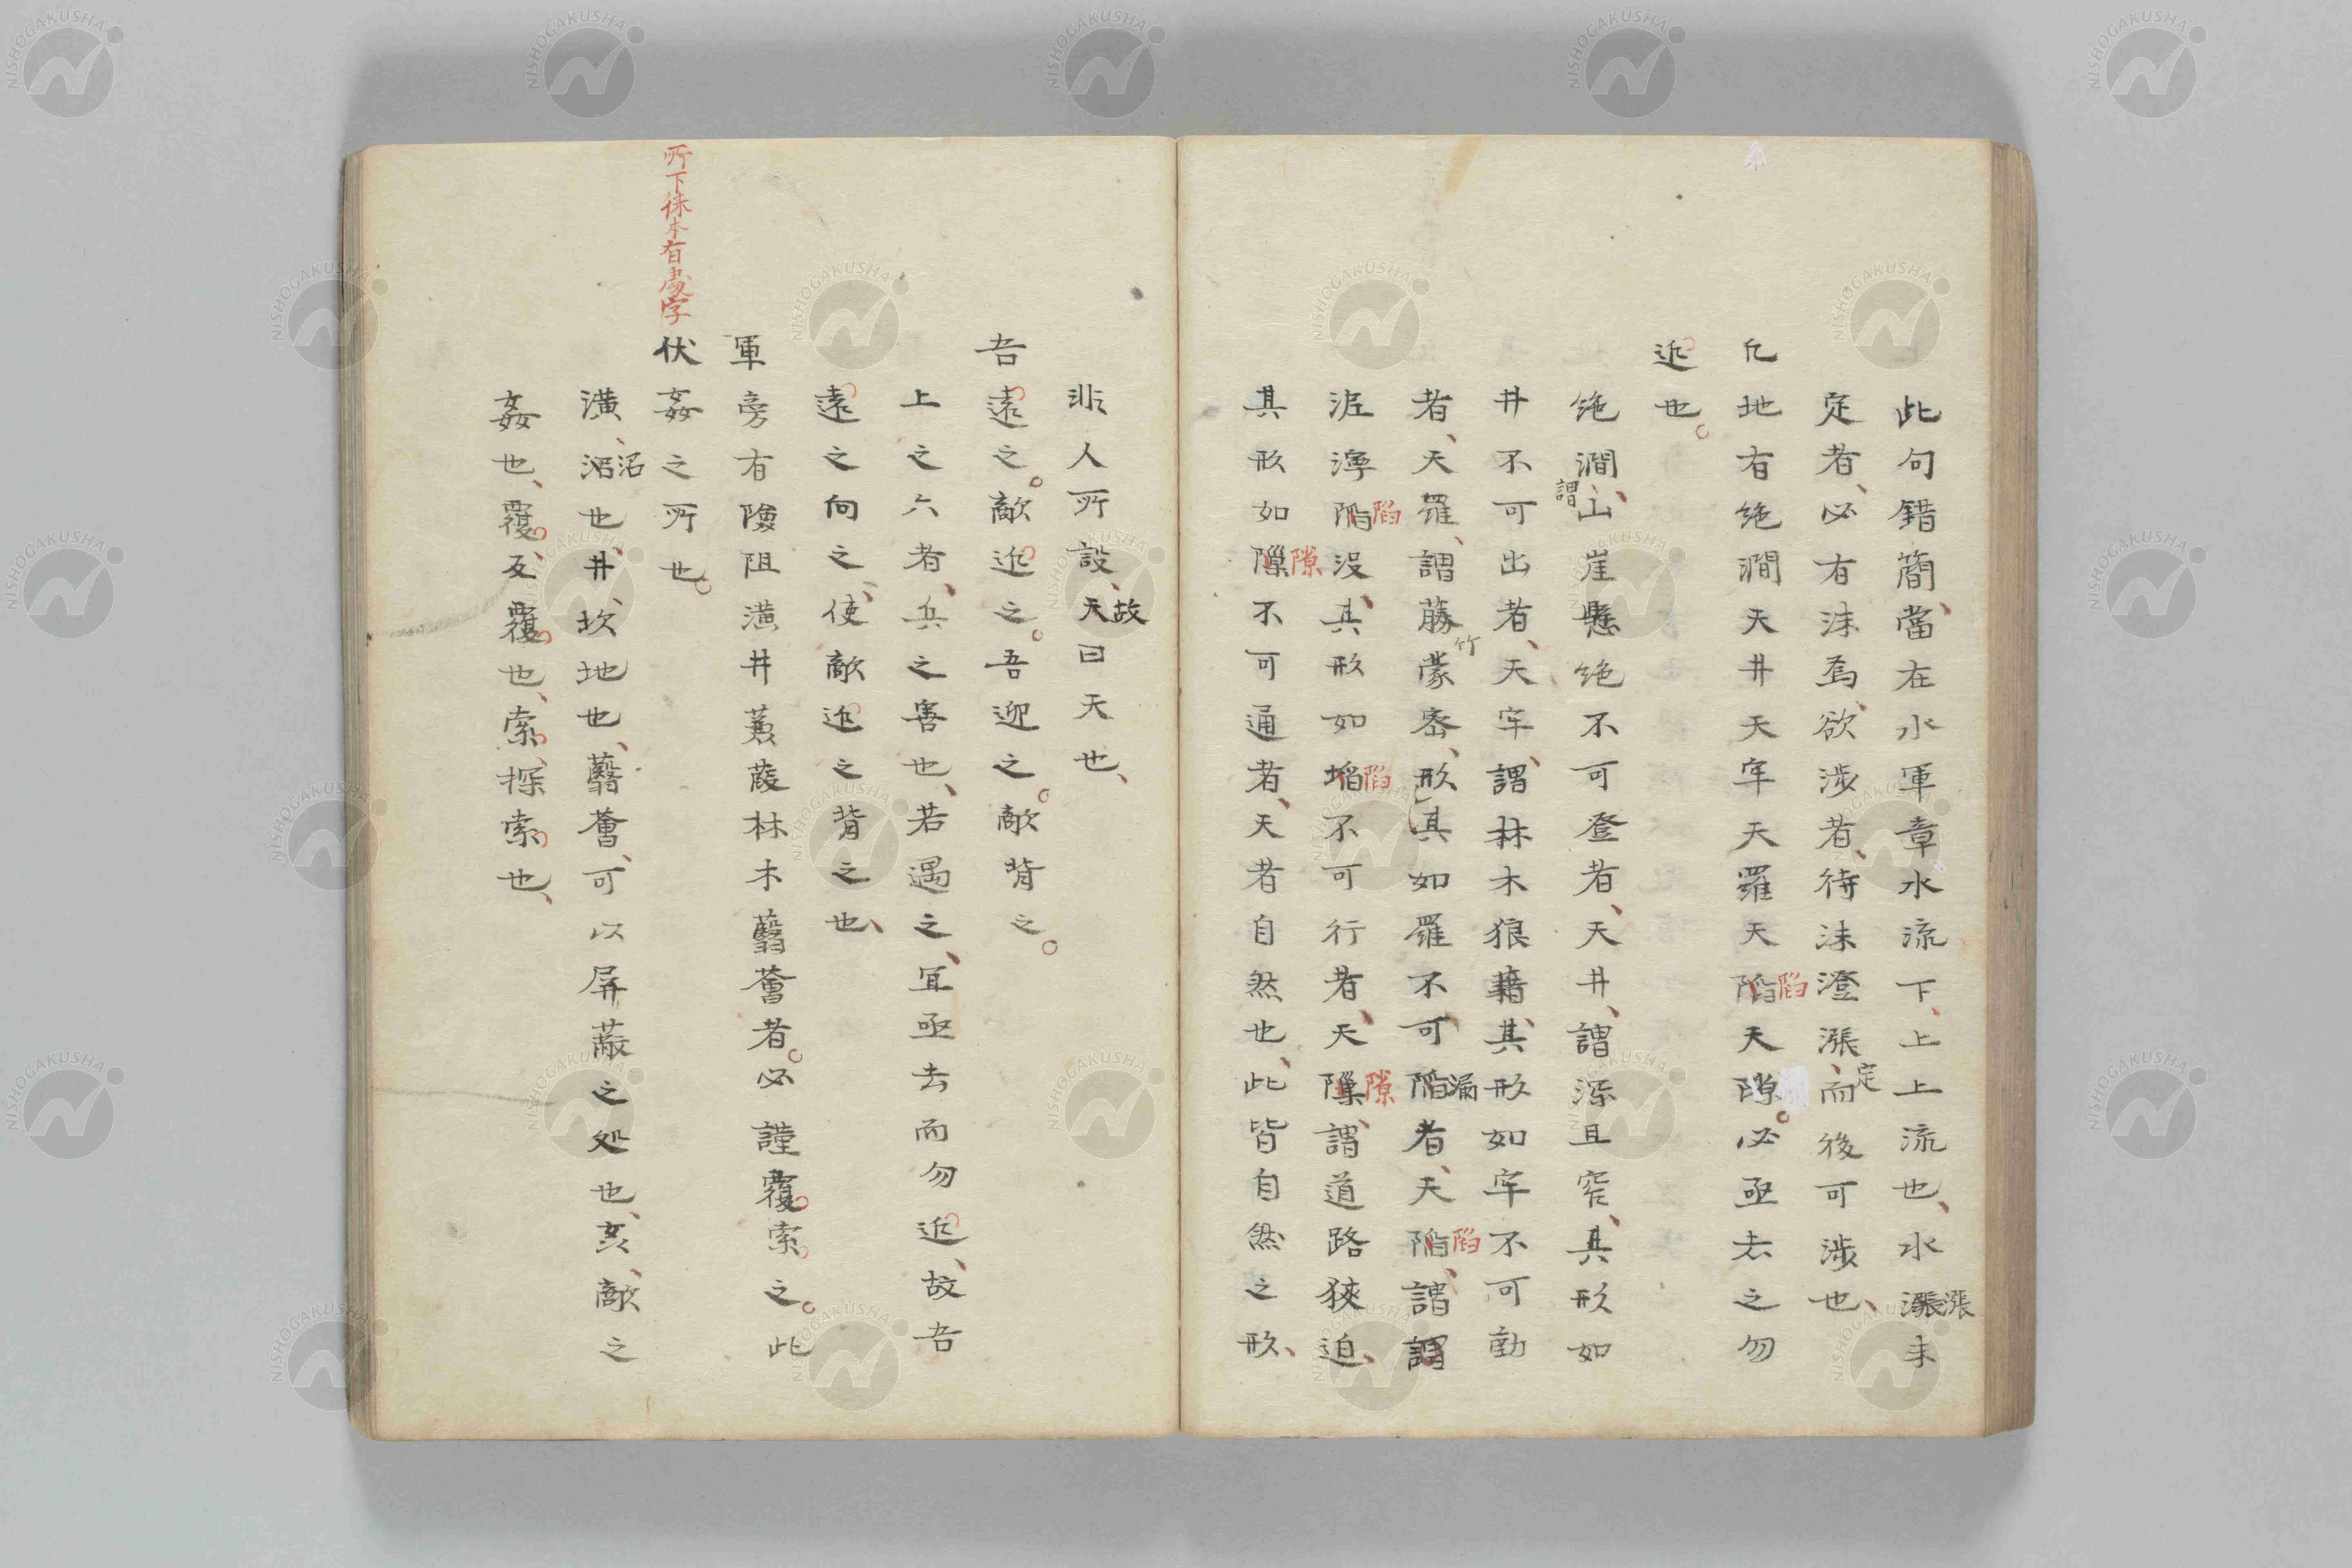 此句錯簡、當在水軍章、水流下、上上流也、水漲漲未
定者、必有沫焉、欲涉者、待沫澄漲、定而後可涉也、
凡地有絶澗天井天牢天羅天陷陷天隙。必亟去之勿
近也。
絶澗、謂山崖懸絶不可登者、天井、謂深且窄、其形如
井不可出者、天牢、謂林木狼藉、其形如牢不可動
者、天羅、謂藤竹蒙密、形其如羅不可陷漏者、天陷陷、謂謂
泥濘陷陷没、其形如陷不可行者、天隙隙、謂道路狹迫、
其形如隙隙不可通者、天者自然也、此皆自然之形、
非人所設、天故曰天也、
吾遠之。敵近之。吾迎之。敵背之。
上之六者、兵之害也、若遇之、宜亟去而勿近、故吾
遠之向之、使敵近之背之也、
軍旁有險阻潢井蒹葭林木蘙薈者。必謹覆索之。此
伏姦之所也。
所下徐本有處字
潢、沼沼也、井、坎地也、蘙薈、可以屏蔽之処也、亥、敵之
姦也、覆、反覆也、索、探索也、
NISHOGAKUSHA